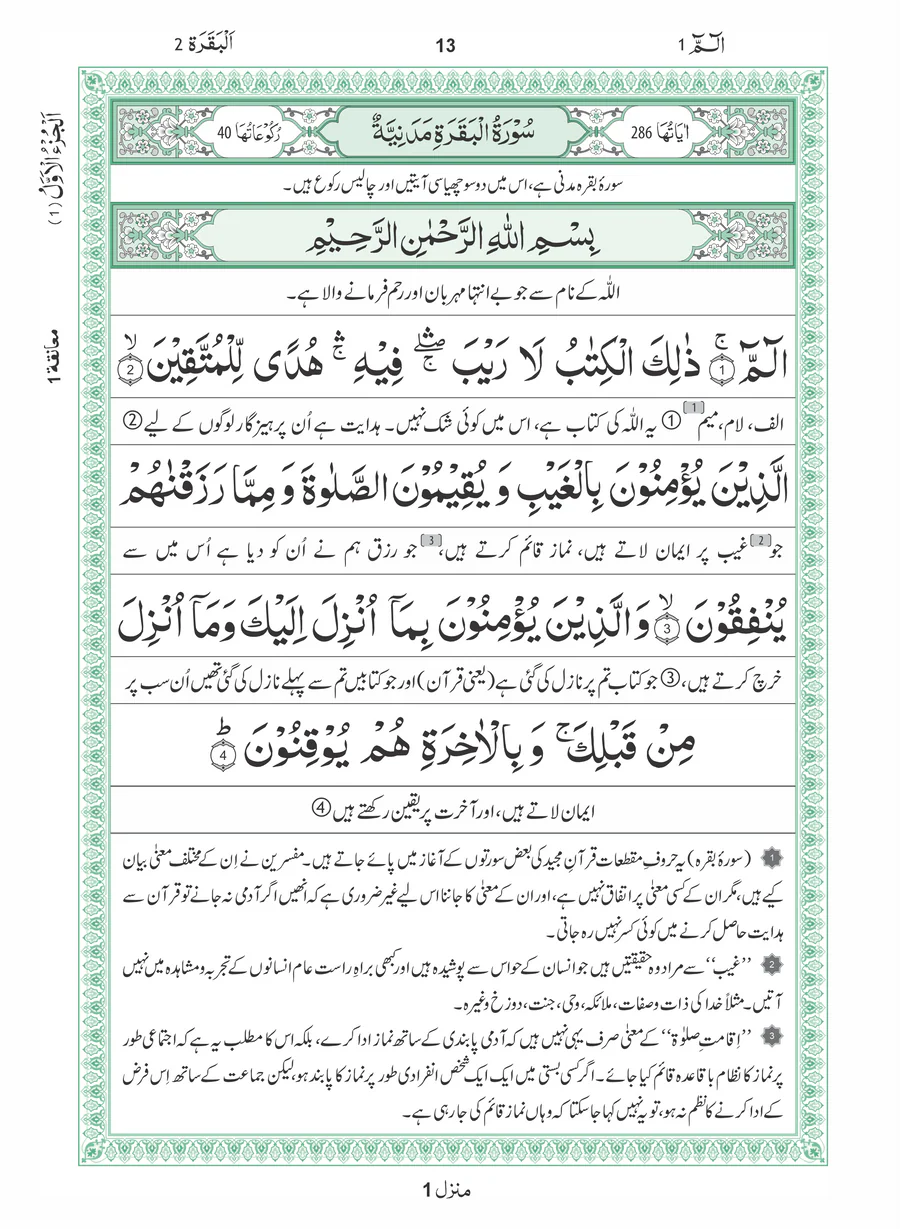 الٓـمّٓ 1
13
اَلْبَقَرَة 2
اَلْجُزْءُ الْاَوَّلُ (1)
اٰيَاتُهَا 286
سُوْرَةُ الْبَقَرَةِ مَدَنِيَّةٌ
رُكُوْعَاتُهَا 40
سورۂ بقرہ مدنی ہے، اس میں دو سو چھیاسی آیتیں اور چالیس رکوع ہیں۔
بِسْمِ اللّٰهِ الرَّحْمٰنِ الرَّحِيْمِ
اللہ کے نام سے جو بے انتہا مہربان اور رحم فرمانے والا ہے۔
معانقة 1
الٓمّٓ ۚ ﴿1﴾ ذٰلِكَ الْكِتٰبُ لَا رَيْبَ ۛۖۚ فِيْهِ ۛۚ هُدًى لِّلْمُتَّقِيْنَ ۙ ﴿2﴾
الف، لام، میم [1] ① یہ اللہ کی کتاب ہے، اس میں کوئی شک نہیں۔ ہدایت ہے اُن پرہیز گار لوگوں کے لیے ②
الَّذِيْنَ يُؤْمِنُوْنَ بِالْغَيْبِ وَ يُقِيْمُوْنَ الصَّلٰوةَ وَ مِمَّا رَزَقْنٰهُمْ
جو [2] غیب پر ایمان لاتے ہیں، نماز قائم کرتے ہیں، [3] جو رزق ہم نے اُن کو دیا ہے اُس میں سے
يُنْفِقُوْنَ ۙ ﴿3﴾ وَ الَّذِيْنَ يُؤْمِنُوْنَ بِمَاۤ اُنْزِلَ اِلَيْكَ وَمَاۤ اُنْزِلَ
خرچ کرتے ہیں، ③ جو کتاب تم پر نازل کی گئی ہے (یعنی قرآن) اور جو کتابیں تم سے پہلے نازل کی گئی تھیں اُن سب پر
مِنْ قَبْلِكَ ۚ وَ بِالْاٰخِرَةِ هُمْ يُوْقِنُوْنَ ؕ ﴿4﴾
ایمان لاتے ہیں، اور آخرت پر یقین رکھتے ہیں ④
1 (سورۂ بقرہ) یہ حروفِ مقطعات قرآنِ مجید کی بعض سورتوں کے آغاز میں پائے جاتے ہیں۔ مفسرین نے اِن کے مختلف معنیٰ بیان
کیے ہیں، مگر ان کے کسی معنیٰ پر اتفاق نہیں ہے، اور ان کے معنیٰ کا جاننا اس لیے غیر ضروری ہے کہ انھیں اگر آدمی نہ جانے تو قرآن سے
ہدایت حاصل کرنے میں کوئی کسر نہیں رہ جاتی۔
2 ’’غیب‘‘ سے مراد وہ حقیقتیں ہیں جو انسان کے حواس سے پوشیدہ ہیں اور کبھی براہِ راست عام انسانوں کے تجربہ و مشاہدہ میں نہیں
آتیں۔ مثلاً خدا کی ذات و صفات، ملائکہ، وحی، جنت، دوزخ وغیرہ۔
3 ’’اِقامتِ صلوٰۃ‘‘ کے معنیٰ صرف یہی نہیں ہیں کہ آدمی پابندی کے ساتھ نماز ادا کرے، بلکہ اس کا مطلب یہ ہے کہ اجتماعی طور
پر نماز کا نظام باقاعدہ قائم کیا جائے۔ اگر کسی بستی میں ایک ایک شخص انفرادی طور پر نماز کا پابند ہو، لیکن جماعت کے ساتھ اِس فرض
کے ادا کرنے کا نظم نہ ہو، تو یہ نہیں کہا جا سکتا کہ وہاں نماز قائم کی جا رہی ہے۔
منزل 1